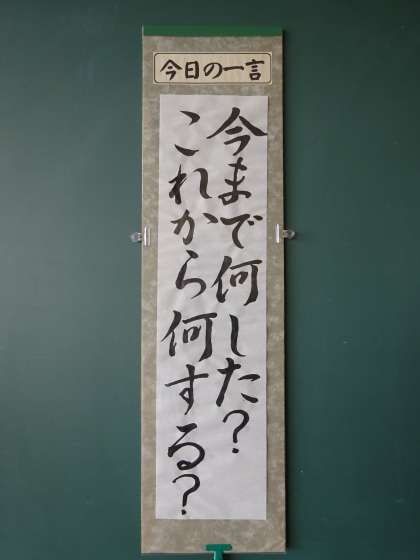 今日の一言
今まで何した？
これから何する？